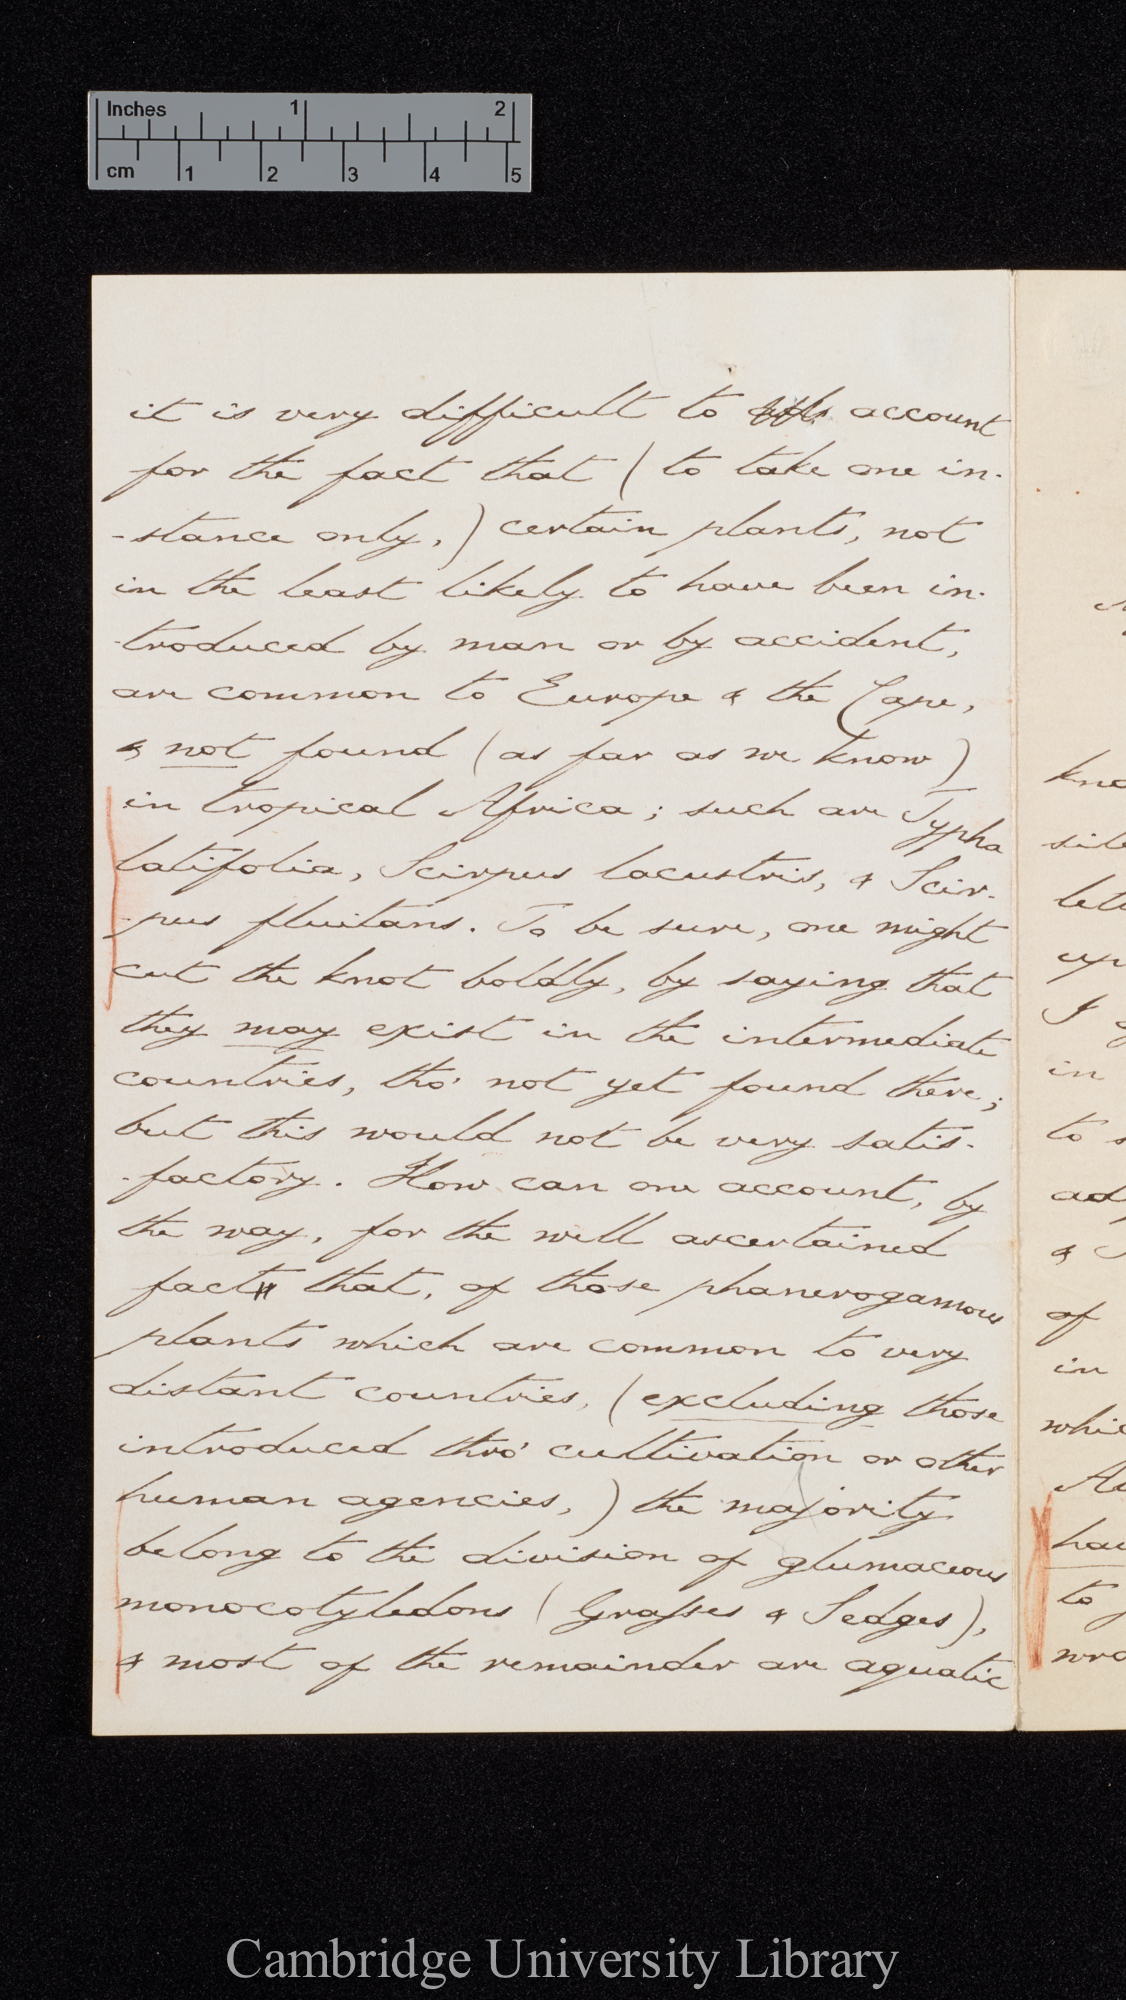 Inches 1 2
cm 1 2 3 4 5
it is very difficult to account
for the fact that (to take one in-
-stance only,) certain plants, not
in the least likely to have been in-
-troduced by man or by accident,
are common to Europe & the Cape,
& not found (as far as we know)
in tropical Africa; such are Typha
latifolia, Scirpus lacustris, & Scir-
-pus fluitans. To be sure, one might
cut the knot boldly, by saying that
they may exist in the intermediate
countries, tho' not yet found there;
but this would not be very satis-
-factory. How can one account, by
the way, for the well ascertained
fact that, of those phanerogamous
plants which are common to very
distant countries, (excluding those
introduced thro' cultivation or other
human agencies,) the majority
belong to the division of glumaceous
monocotyledons (Grasses & Sedges),
& most of the remainder are aquatic
kno
site
lett
up
I
in
to s
ad
&
of
in
whic
hav
to
wro
Cambridge University Library